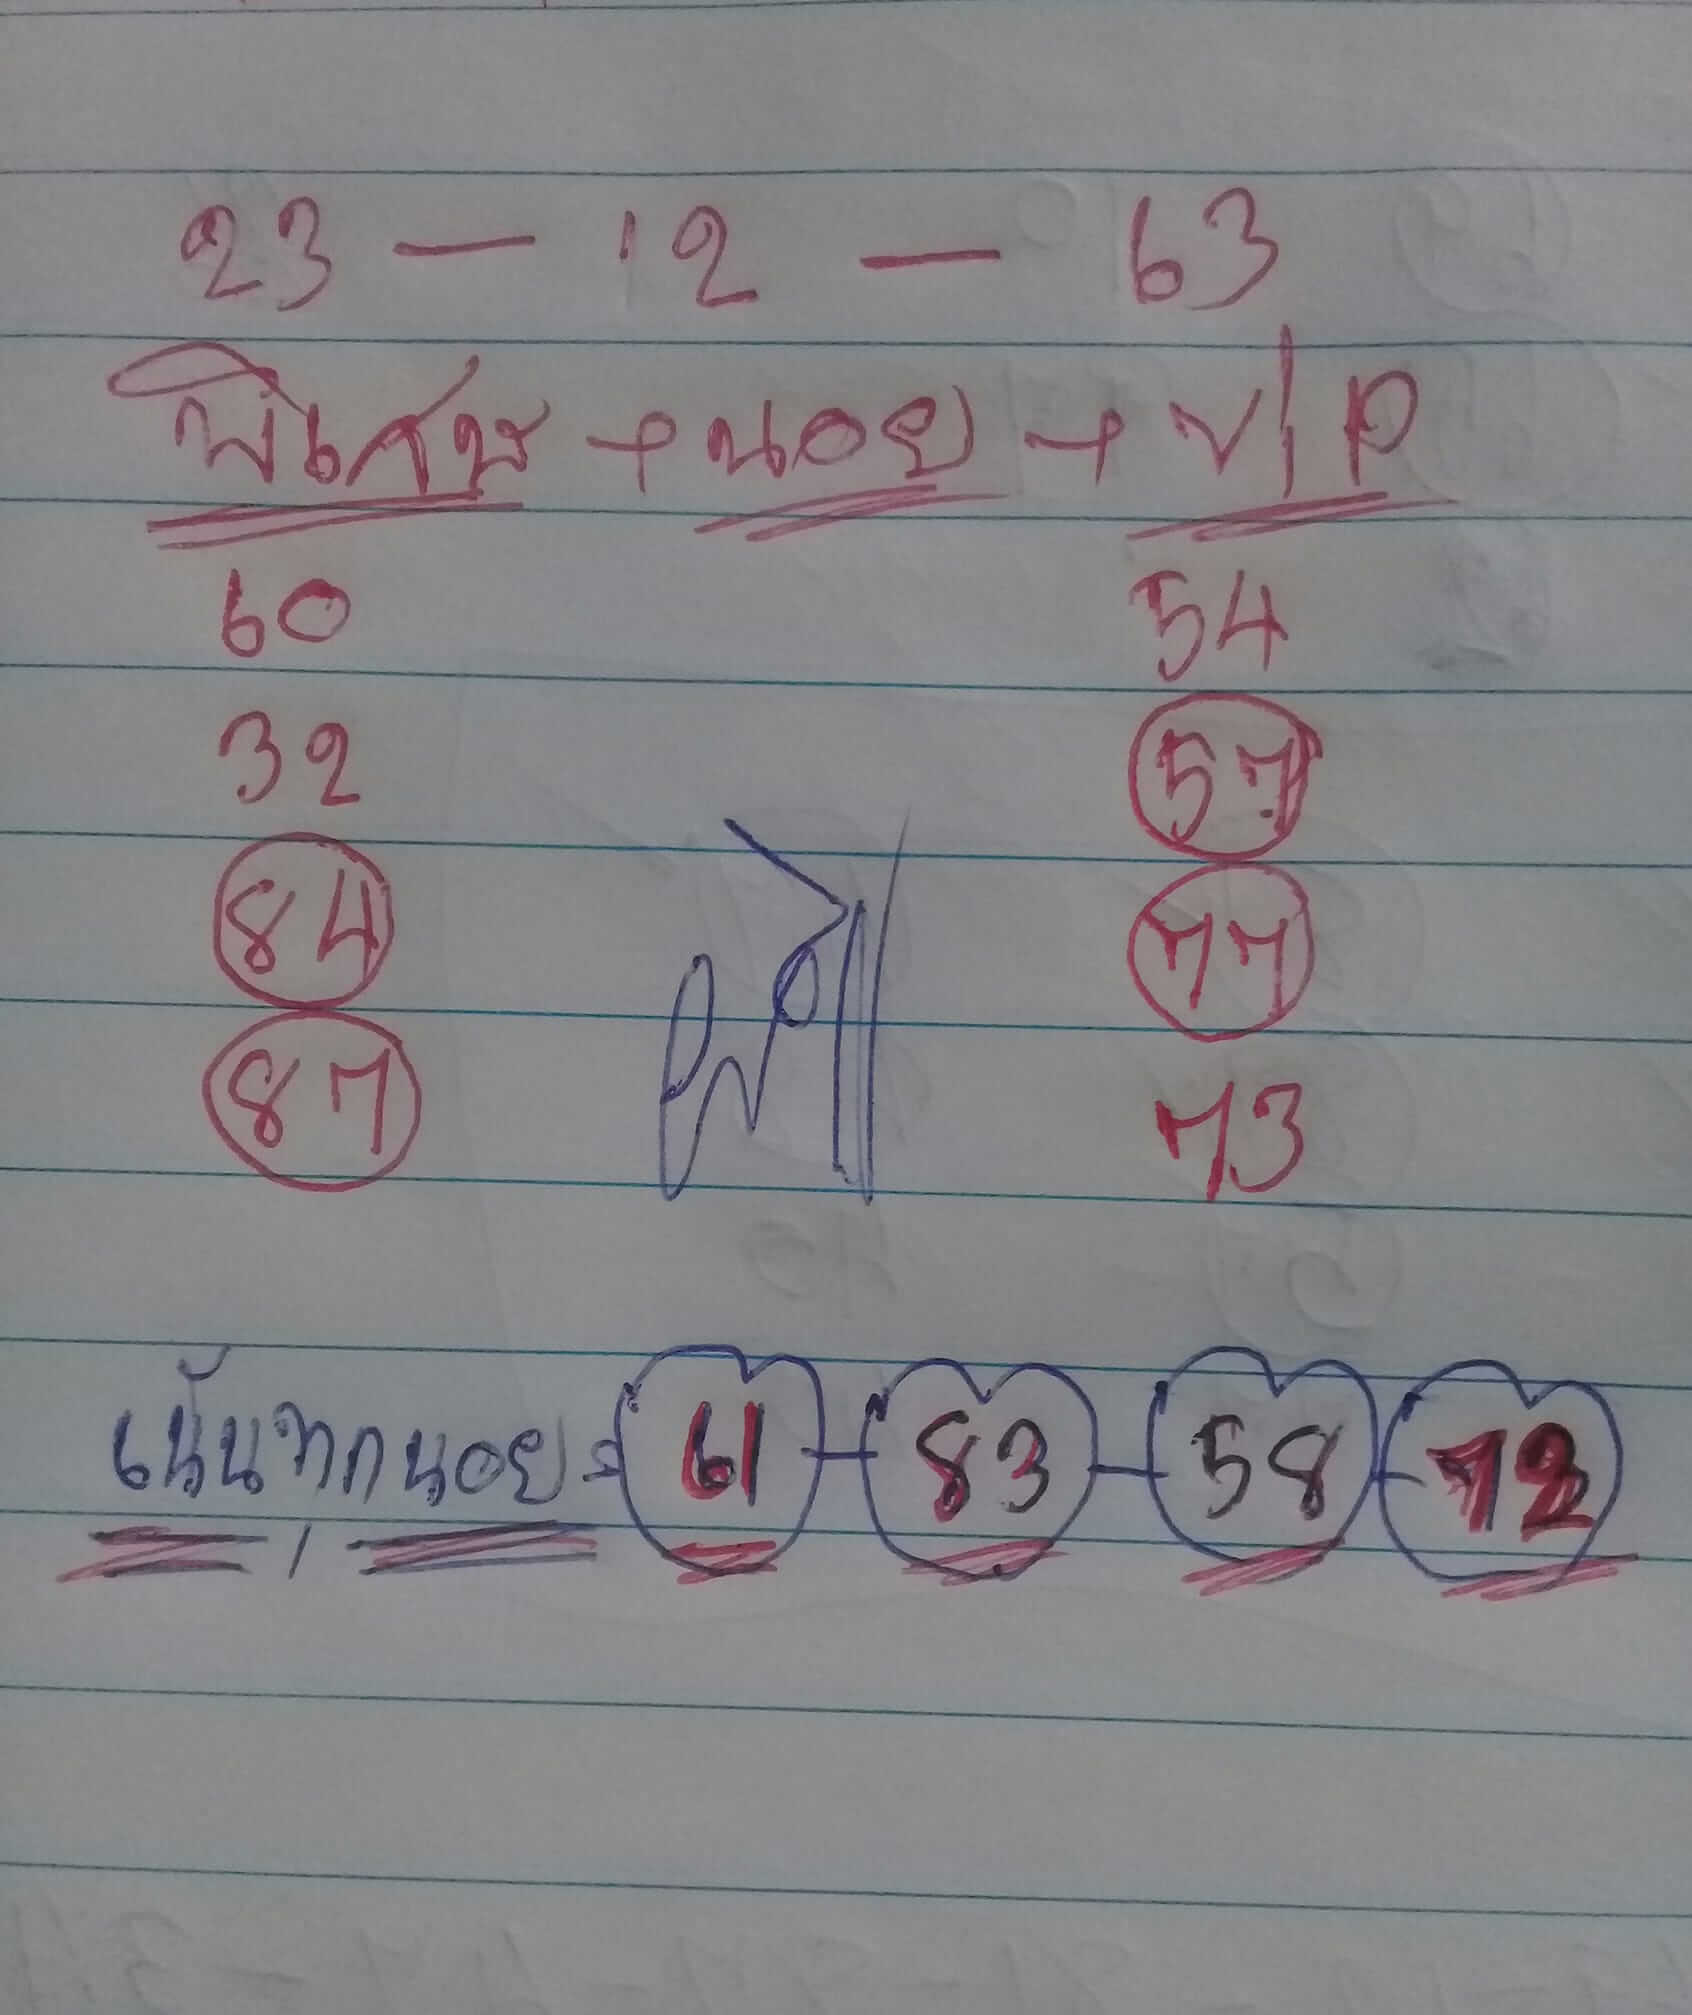 23 — 12 — 63
พิเศษ + นอย + VIP
60 54
32 57
84 77
87 73
เน้นทุกนอย = 61 - 83 - 58 - 72